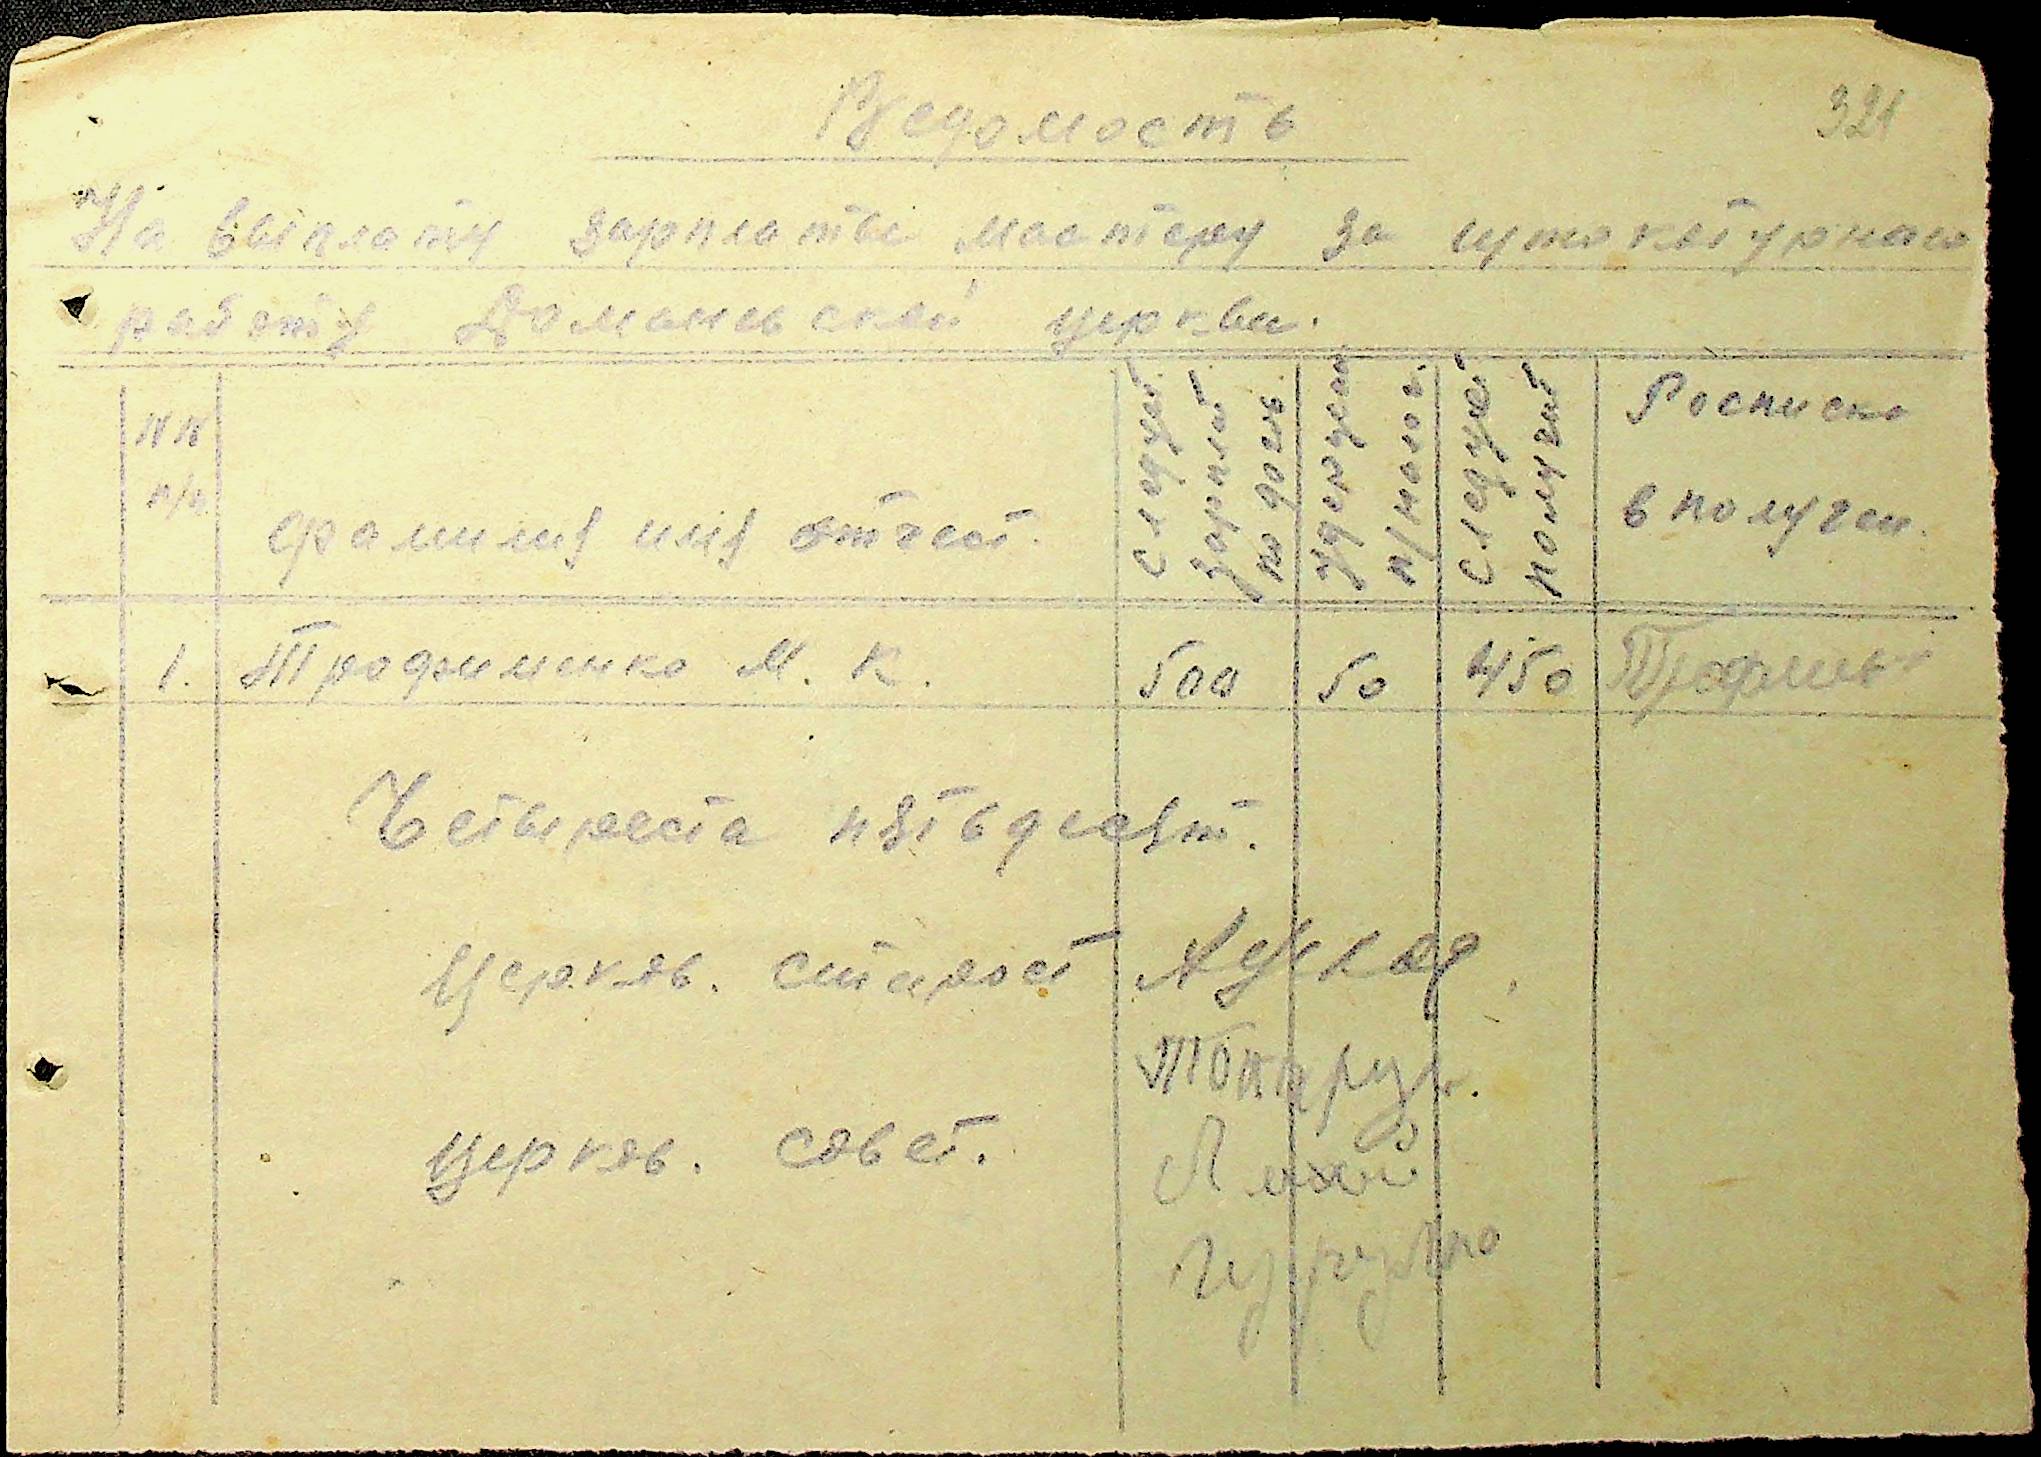 321
Ведомость
На выплату зарплаты мастеру за штокатурную
работу Доманевской церкви.
NN
п/п
фамилия имя отчест.
Следует
зарплат
по дого
Удержен
п/налог.
Следует
получит
Росписка
в получен.
1. Трофименко М. К. 500 50 450 Трофимен
Четыреста пятьдесят.
Церков. старост
Церков. совет.